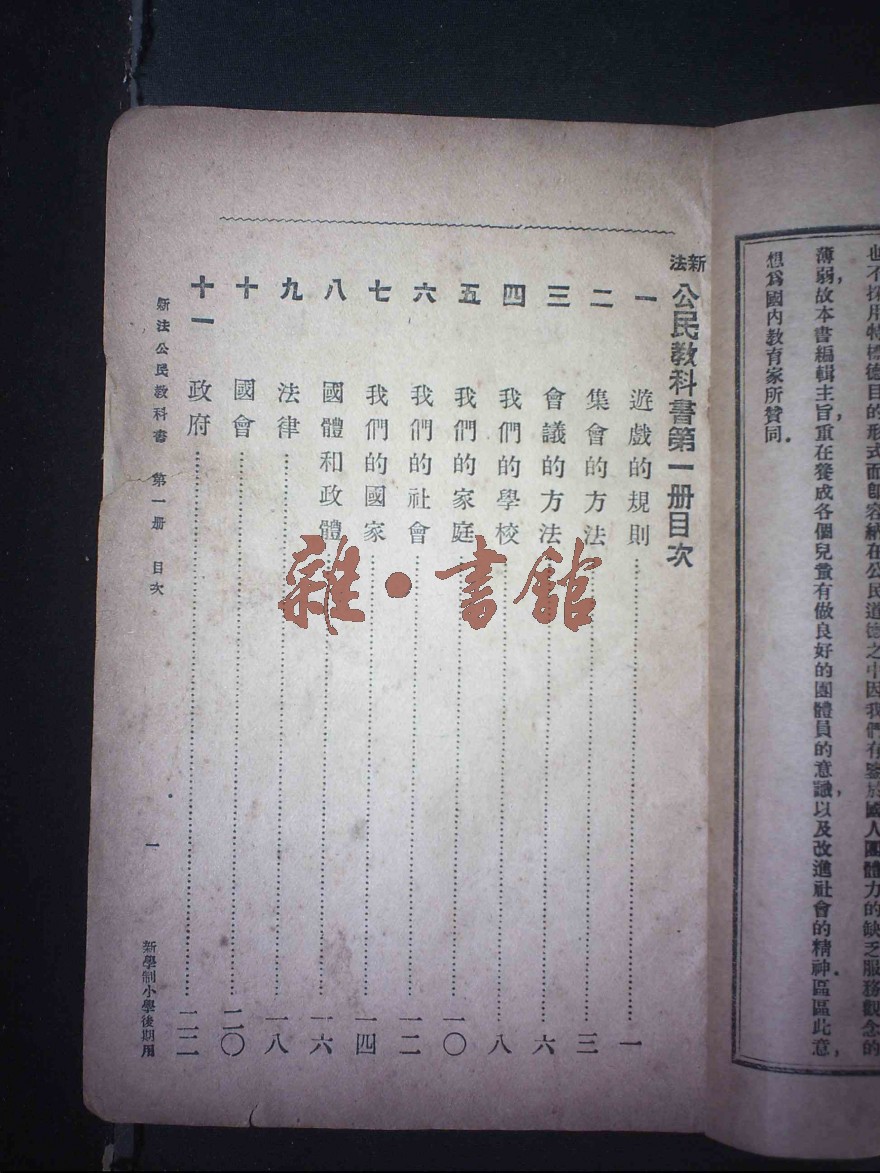 也不採用特標德目的形式而節容納在公民道德之中因我們有鑒於國人團體力的缺乏服務觀念的
薄弱故本書編輯主旨重在養成各個兒童有做良好的團體員的意識以及改進社會的精神區區此意，
想爲國內教育家所贊同。
新法公民教科書第一册目次
一 遊戲的規則……一
二 集會的方法……三
三 會議的方法……六
四 我們的學校……八
五 我們的家庭……一〇
六 我們的社會……一二
七 我們的國家……一四
八 國體和政體……一六
九 法律……一八
十 國會……二〇
十一 政府……二二
新法公民教科書 第一册 目次 一 新學制小學後期用
雜·書館